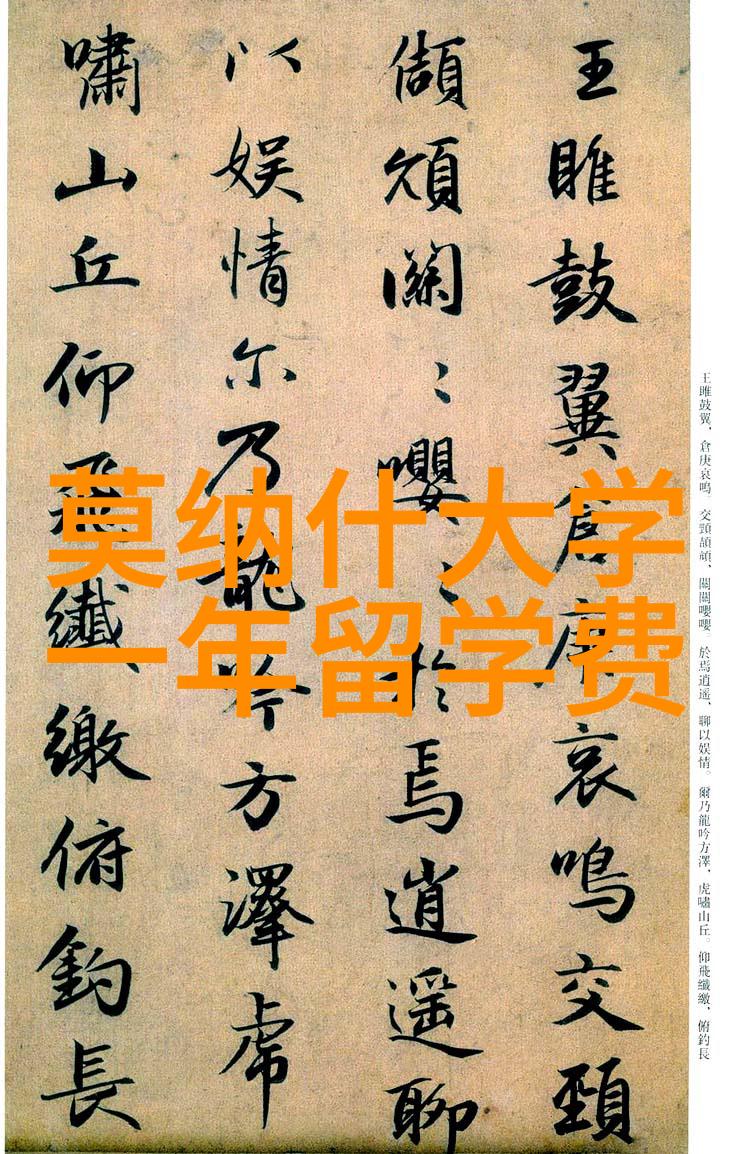 莫纳什大学
一年留学费
王雎鼓翼倉庚哀鳴交頸
頡頏關〻嚶〻於焉逍遥聊
以娱情尔乃龍吟方澤虎
嘯山丘仰飛纖繳俯釣長
王雎鼓翼、倉庚哀鳴。交頸頡頏、關關嚶嚶。於焉逍遥、聊以娱情。爾乃龍吟方澤、虎嘯山丘。仰飛纖繳、俯釣長